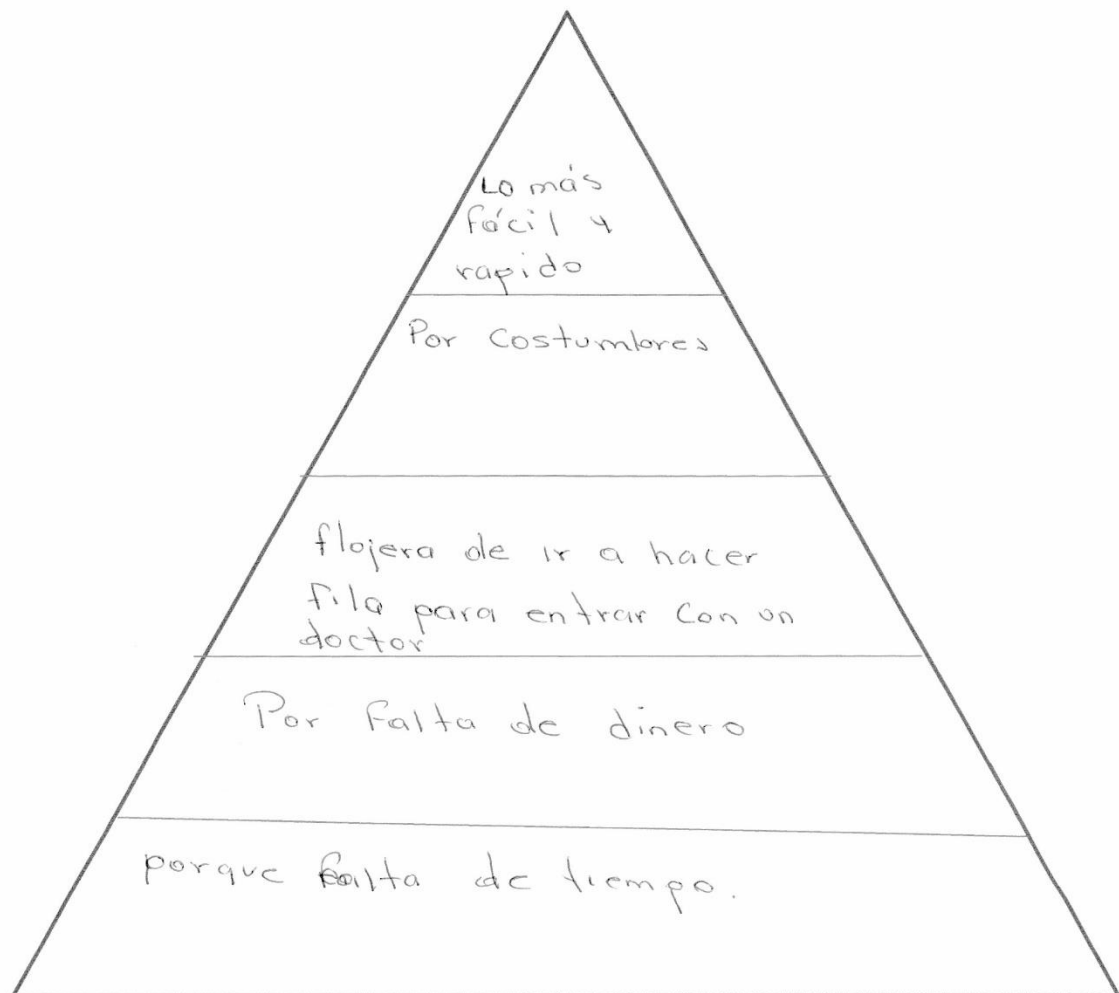 Lo más
fácil y
rapido
Por Costumbres
flojera de ir a hacer
fila para entrar con un
doctor
Por Falta de dinero
porque falta de tiempo.